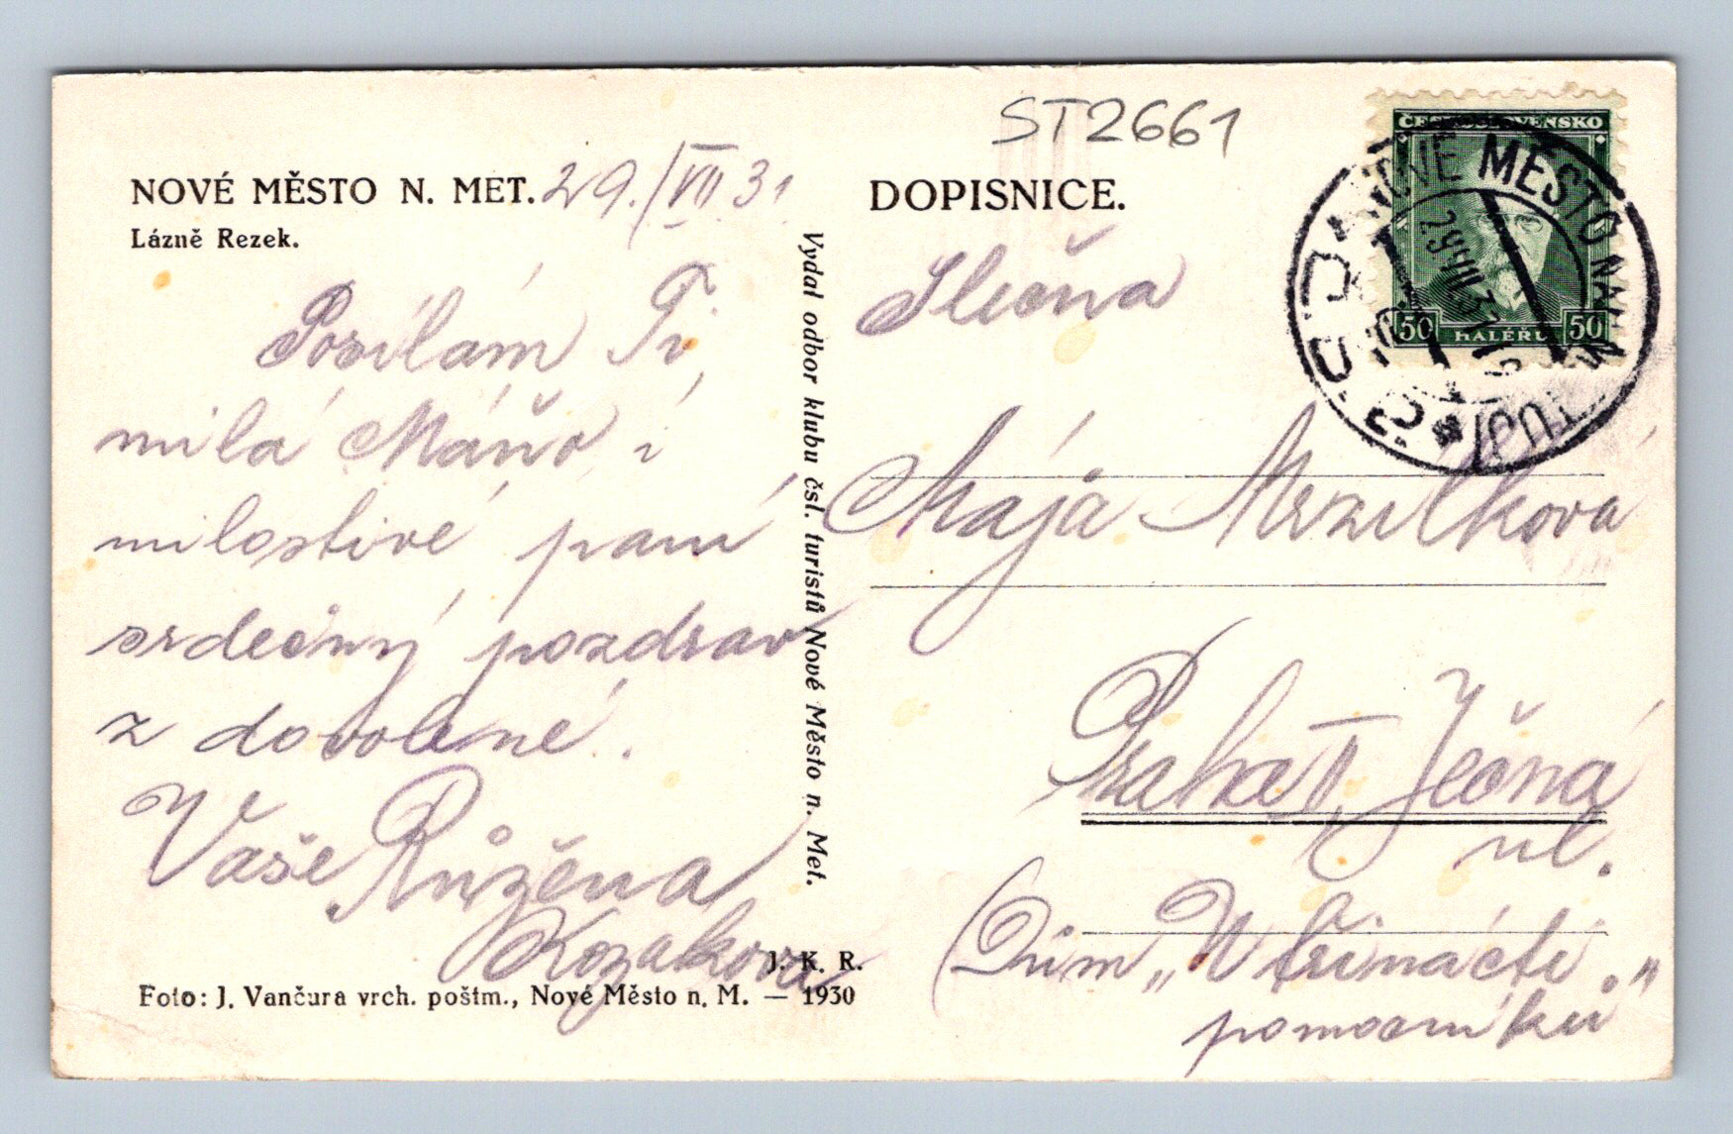 ST2661
NOVÉ MĚSTO N. MET. 29./VII 31
Lázně Rezek.
Posílám Ti,
milá Máňo, i
milostivé paní
srdečný pozdrav
z dovolené.
Vaše Růžena
Kozakova
J. K. R.
Foto: J. Vančura vrch. poštm., Nové Město n. M. — 1930
Vydal odbor klubu čsl. turistů Nové Město n. Met.
DOPISNICE.
Slečna
Mája Mrzilkova
Praha II, Ječná
ul.
(Dům „U třinácti
pomocníků"
ČESKOSLOVENSKO
50 HALÉŘŮ 50
NOVÉ MĚSTO NAD